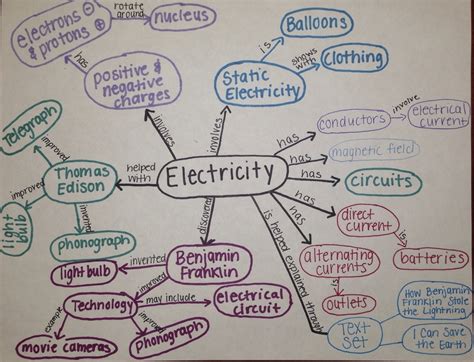 electrons
& protons
rotate
around
nucleus
has
positive &
negative
charges
involves
Balloons
is
shows
with
clothing
Static
Electricity
involves
Electricity
has
conductors
involve
electrical
current
has
magnetic field
has
circuits
has
direct
current
is
batteries
has
alternating
currents
is
outlets
is helped explained through
Text
Set
How Benjamin
Franklin Stole
the Lightning
I Can Save
the Earth
helped
with
Thomas
Edison
improved
Telegraph
improved
light
bulb
invented
phonograph
discovered
Benjamin
Franklin
invented
lightbulb
improved
Technology
may include
electrical
circuit
example
movie cameras
improved
phonograph